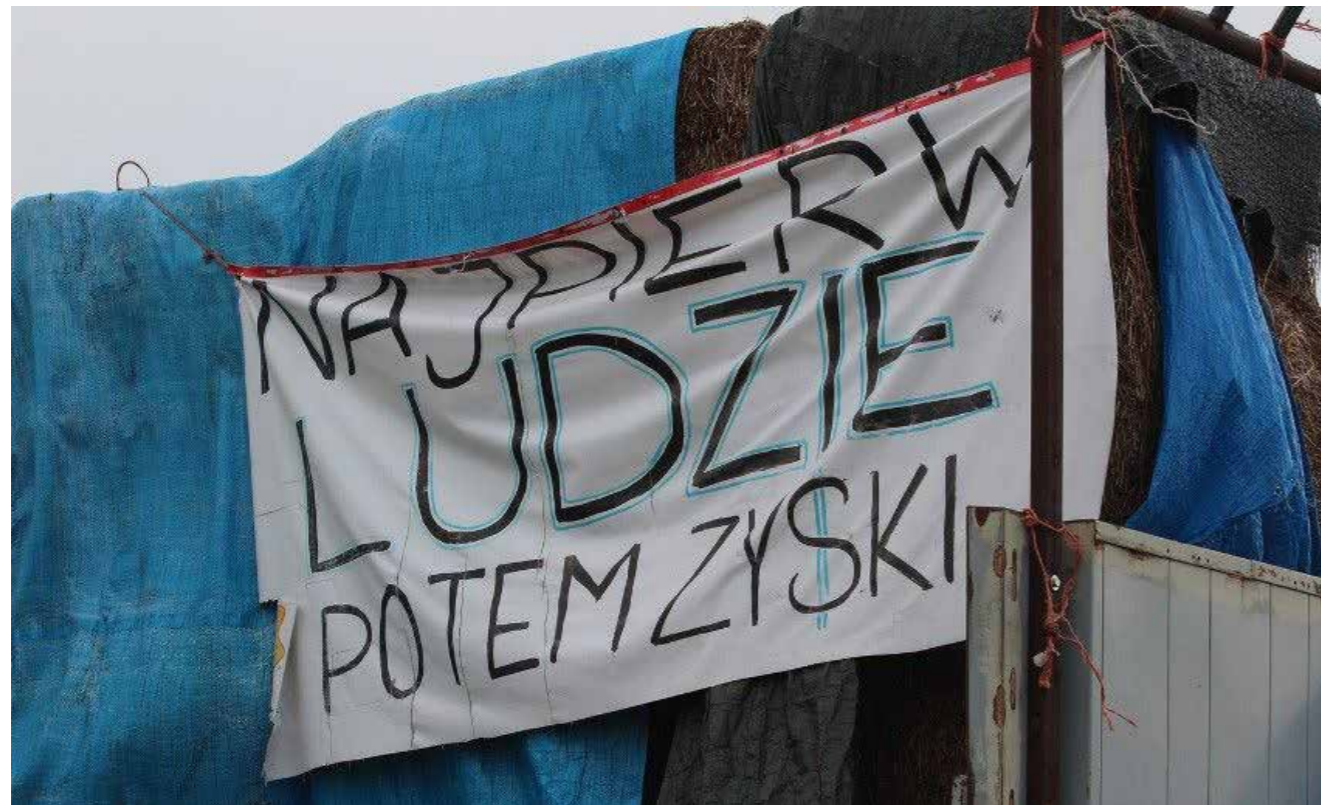 NAJPIERW
LUDZIE
POTEM ZYSKI